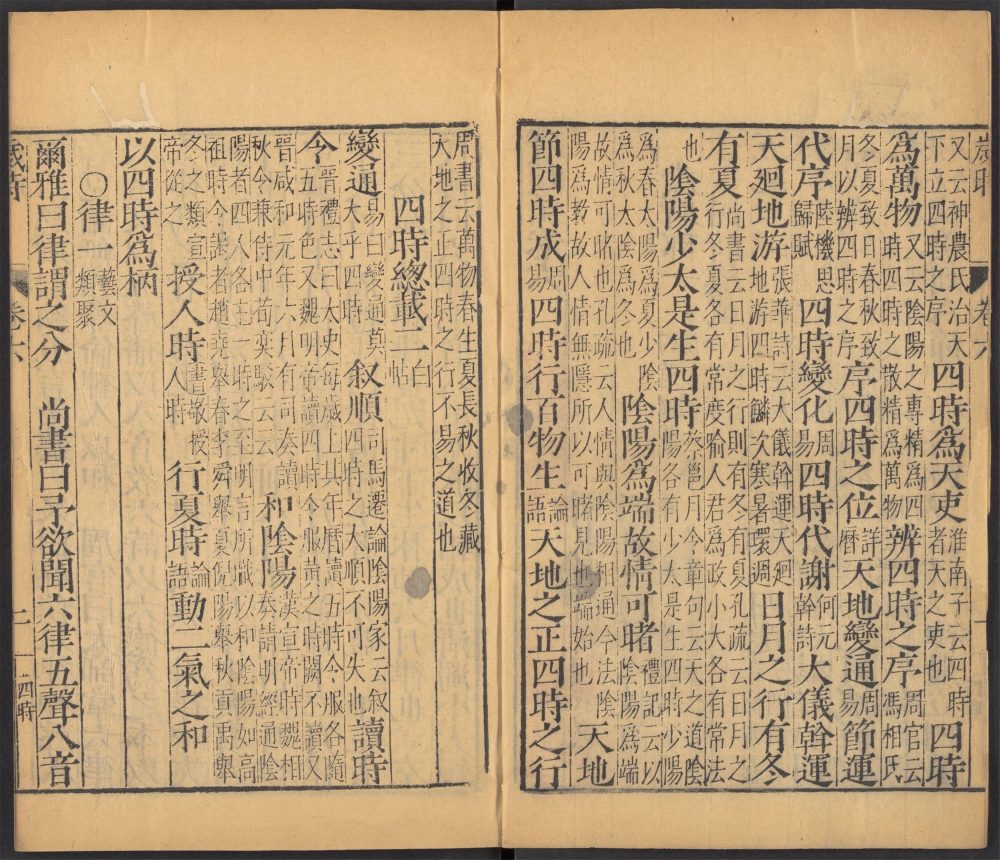 歲時 卷六 一
又云神農氏治天
下立四時之序
四時爲天吏
淮南子云四時
者天之吏也
四時
爲萬物
又云陰陽之專精爲四
時四時之散精爲萬物
辨四時之序
周官云
馮相氏
冬夏致日春秋致
月以辨四時之序
序四時之位
詳
曆
天地變通
周
易
節運
代序
陸機思
歸賦
四時變化
周
易
四時代謝
何元
幹詩
大儀斡運
天廻地游
張華詩云大儀斡運天廻
地游四時鱗次寒暑環周
日月之行有冬
有夏
尚書云日月之行則有冬有夏孔疏云日月之
行冬夏各有常度喻人君爲政小大各有常法
也
陰陽少太是生四時
蔡邕月令章句云天之道陰
陽各有少太是生四時少陽
爲春太陽爲夏少陰
爲秋太陰爲冬也
陰陽爲端故情可睹
禮記云以
陰陽爲端
故情可睹也孔疏云人情與陰陽相通今法陰
陽爲教故人情無隱所以可睹見也端始也
天地
節四時成
周
易
四時行百物生
論
語
天地之正四時之行
周書云萬物春生夏長秋收冬藏
天地之正四時之行不易之道也
四時總載二
白
帖
變通
易曰變通莫
大乎四時
叙順
司馬遷論陰陽家云叙
四時之大順不可失也
讀時
令
晉禮志曰太史每歲上其年曆讀五時令服各隨
五時色又魏明帝讀四時令服黃之時闕不讀又
晉咸和元年六月有司奏讀
秋令兼侍中荀奕駁云云
和陰陽
漢宣帝時魏相
奏請明經通陰
陽者四人各主一時之至明言所職以和陰陽如高
祖時令謁者趙堯舉春李舜舉夏倪陽舉秋貢禹舉
冬之類宣
帝從之
授人時
書敬授
人時
行夏時
論
語
動二氣之和
以四時爲柄
〇律一
藝文
類聚
爾雅曰律謂之分 尚書曰予欲聞六律五聲八音
歲時 卷六 二 四時